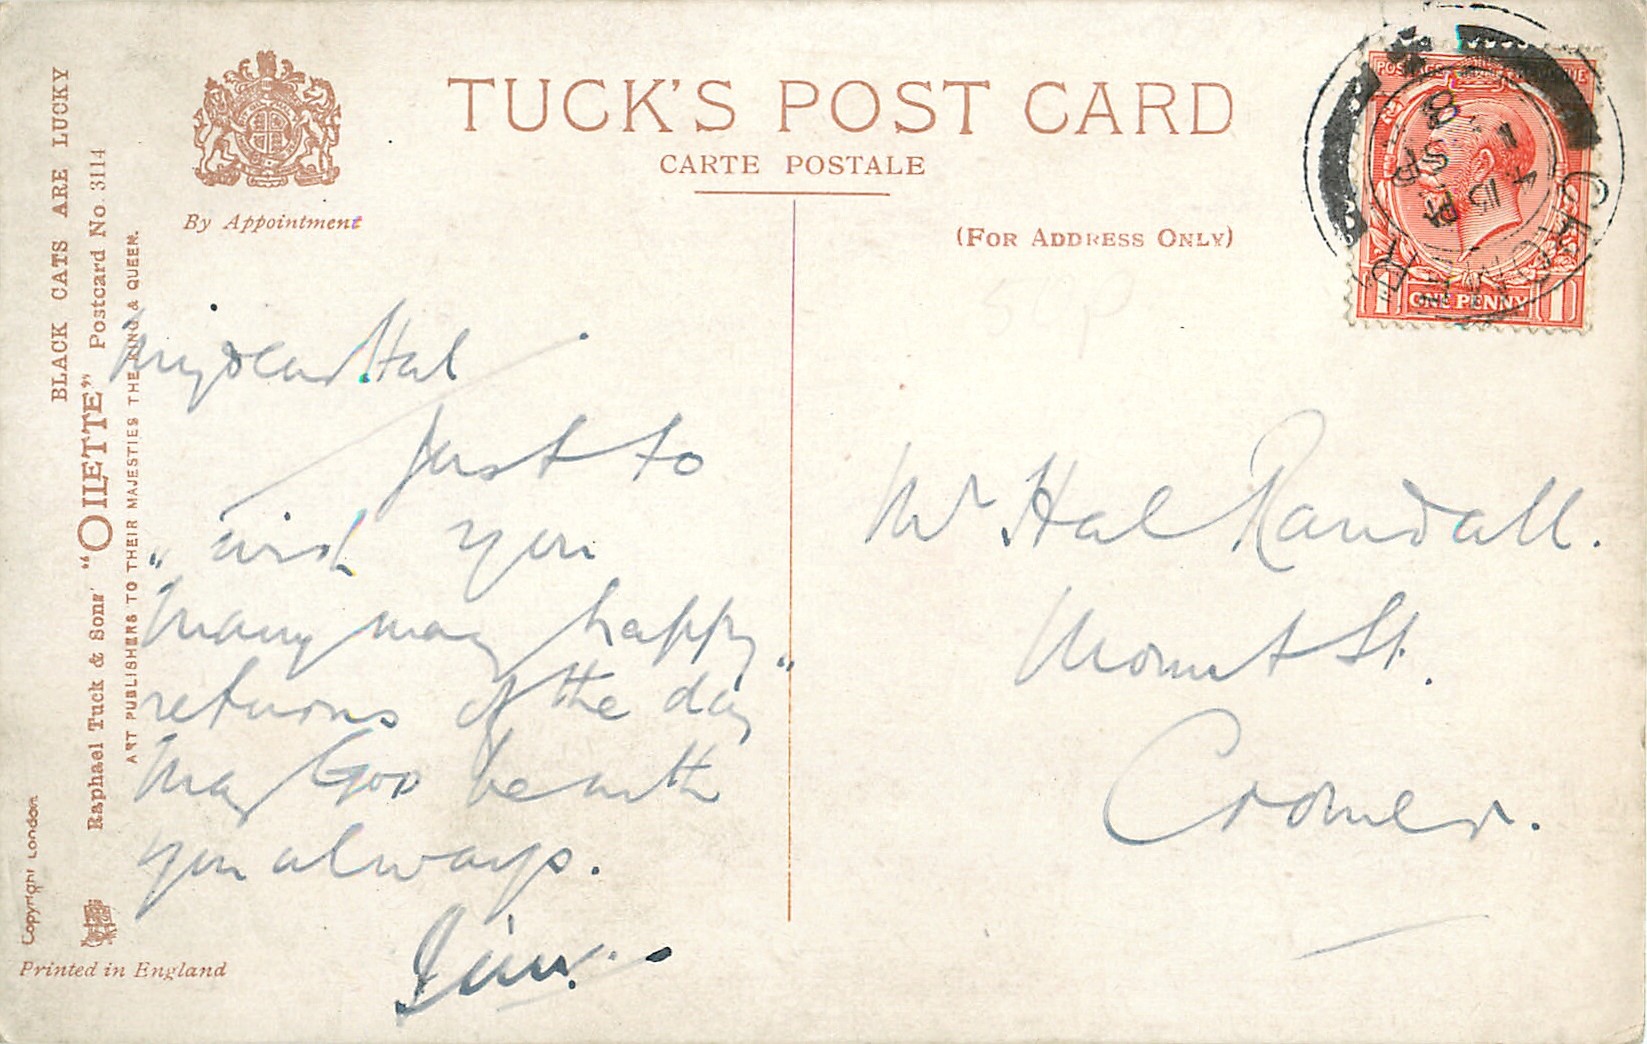 TUCK'S POST CARD
CARTE POSTALE
By Appointment
(FOR ADDRESS ONLY)
BLACK CATS ARE LUCKY
Raphael Tuck & Sons' "OILETTE" Postcard No. 3114
ART PUBLISHERS TO THEIR MAJESTIES THE KING & QUEEN.
Copyright London
Printed in England
My dear Hal
Just to
"wish you
Many many happy"
returns of the day
May God be with
you always.
Jim.
Mr Hal Randall.
Mount St.
Cromer.
POSTAGE REVENUE
ONE PENNY
1 1
CROMER